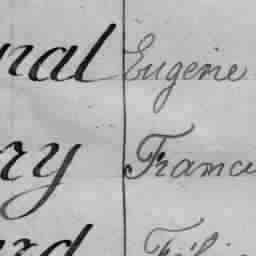 nal Eugène
ry Franci
rd Féli